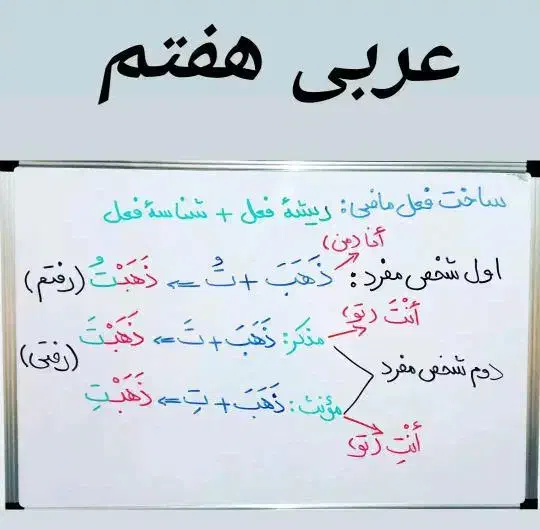 عربی هفتم
ساخت فعل ماضی: ریشهٔ فعل + شناسهٔ فعل
أنا (من)
اول شخص مفرد: ذَهَبَ + تُ => ذَهَبْتُ (رفتم)
أنْتَ (تو)
مذکر: ذَهَبَ + تَ => ذَهَبْتَ
دوم شخص مفرد (رفتی)
مؤنث: ذَهَبَ + تِ => ذَهَبْتِ
أنْتِ (تو)